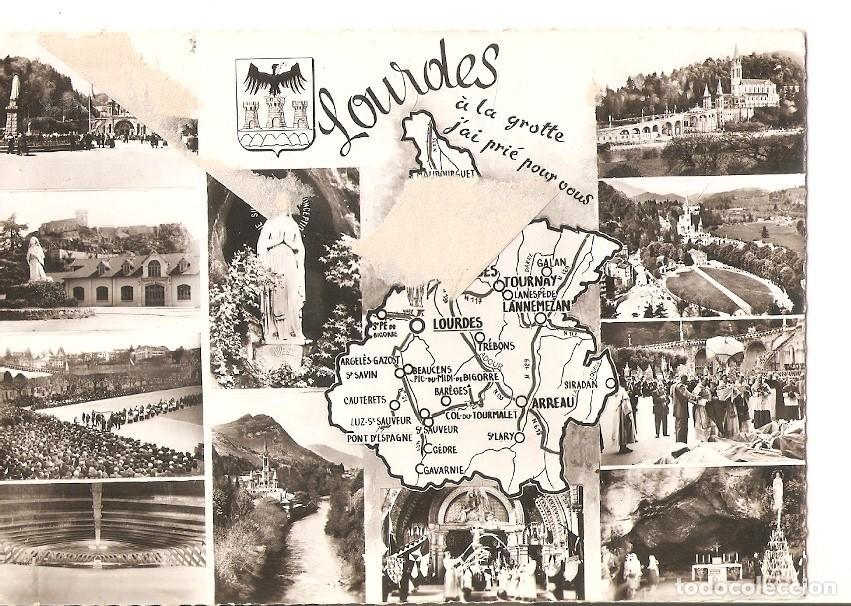 Lourdes
à la grotte
j'ai prié pour vous
MAUBOURGUET
GALAN
TOURNAY
LANESPÈDE
LANNEMEZAN
St PÉ DE
BIGORRE
LOURDES
TRÉBONS
ARGELÈS-GAZOST
St SAVIN
BEAUCENS
PIC-DU-MIDI-DE-BIGORRE
BARÈGES
SIRADAN
CAUTERETS
ARREAU
COL-DU-TOURMALET
LUZ-St SAUVEUR
St SAUVEUR
PONT D'ESPAGNE
St LARY
GÈDRE
GAVARNIE
ADOUR
todocoleccion